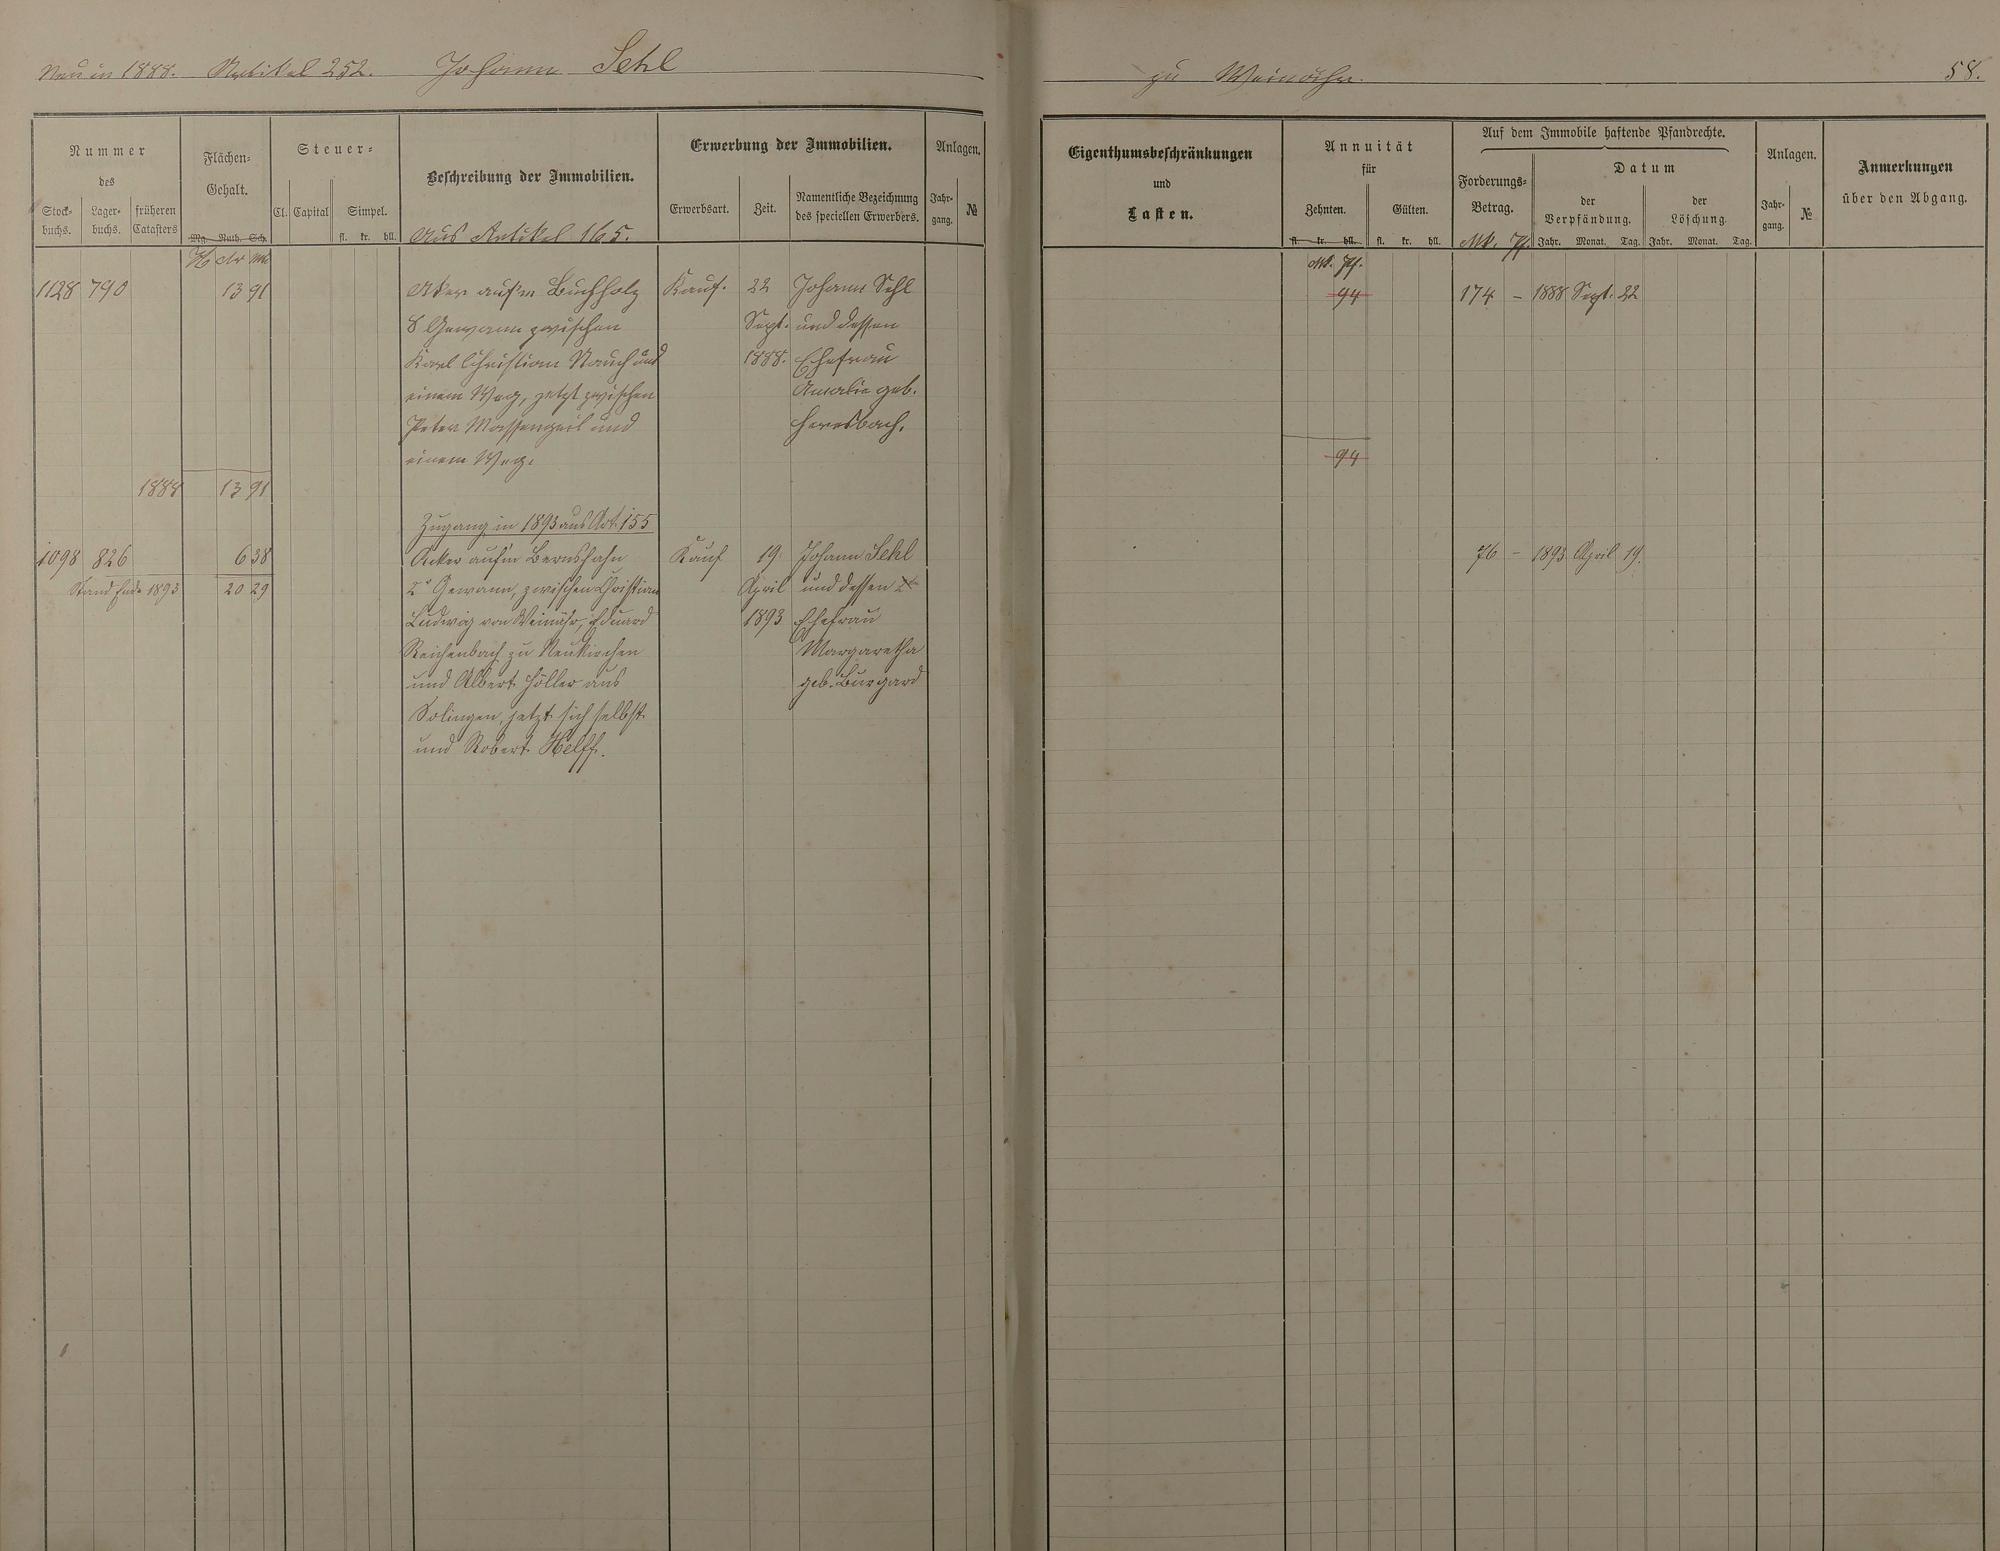 Neu in 1888. Artikel 252. Johann Sehl
zu Weinähr. 58.
Nummer
des
Stock-
buchs.
Lager-
buchs.
früheren
Catasters
Flächen-
Gehalt.
Mg. Ruth. Sch.
H Ar Me
Steuer-
Cl. Capital Simpel.
fl. kr. hll.
Beschreibung der Immobilien.
Aus Artikel 165.
Erwerbung der Immobilien.
Erwerbsart. Zeit.
Namentliche Bezeichnung
des speciellen Erwerbers.
Anlagen.
Jahr-
gang.
№
Eigenthumsbeschränkungen
und
Lasten.
Annuität
für
Zehnten. Gülten.
fl. kr. hll. fl. kr. hll.
Mk. Pf.
Auf dem Immobile haftende Pfandrechte.
Forderungs-
Betrag.
Mk. Pf.
Datum
der
Verpfändung.
der
Löschung.
Jahr. Monat. Tag. Jahr. Monat. Tag.
Anlagen.
Jahr-
gang.
№
Anmerkungen
über den Abgang.
1128 790 13 91 Aker auf'm Buchholz Kauf. 22 Johann Sehl 94 174 – 1888 Sept. 22
8 Gewann zwischen Sept. und dessen
Karl Christian Rauch und 1888. Ehefrau
einem Weg, jetzt zwischen Amalie geb.
Peter Massengeil und Heresbach.
einem Weg. 94
1888 13 91
Zugang in 1893 aus Art. 155
1098 826 6 38 Acker auf'm Bernshahn Kauf 19. Johann Sehl 76 – 1893 April 19.
Stand Ende 1893 20 29 2r Gewann, zwischen Christian April und dessen 2te
Ludwig von Weinähr, Eduard 1893 Ehefrau
Reichenbach zu Neukirchen Margaretha
und Albert Höller aus geb. Burgard
Solingen, jetzt sich selbst
und Robert Helff.